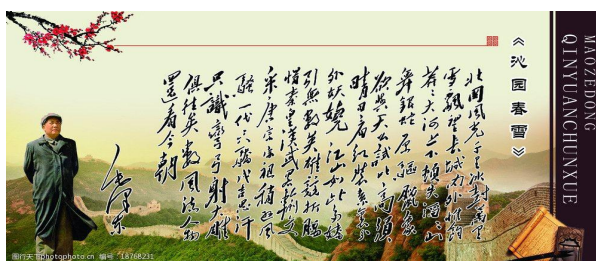 MAOZEDONG
QINYUANCHUNXUE
《沁园春雪》
北国风光千里冰封万里
雪飘望长城内外惟余
莽莽大河上下顿失滔滔山
舞银蛇原驱腊象
欲与天公试比高须
晴日看红装素裹分
外妖娆 江山如此多娇
引无数英雄竞折腰
惜秦皇汉武略输文
采唐宗宋祖稍逊风
骚一代天骄成吉思汗
只识弯弓射大雕
俱往矣数风流人物
还看今朝
毛泽东
图行天下 photophoto.cn 编号：18768231